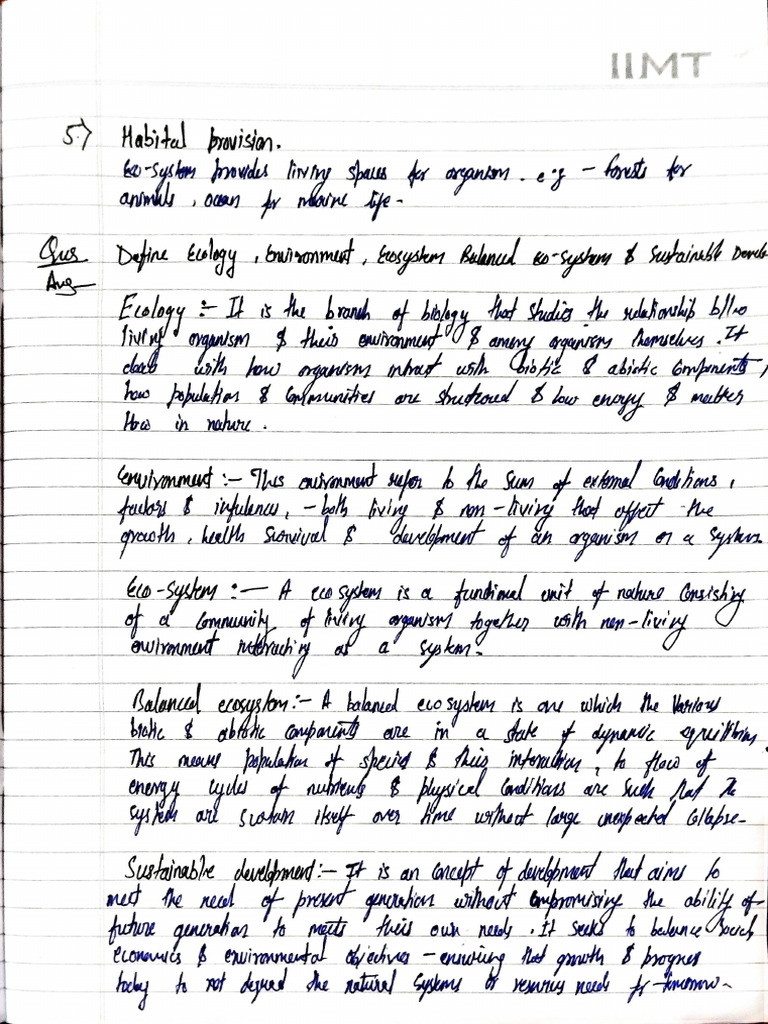 IIMT
5.) Habital provision.
Eco-system provides living spaces for organism. e.g - forests for
animals, ocean for marine life -
Ques Define Ecology, Environment, Ecosystem Balanced eco-system & Sustainable Devel
Ans Ecology :- It is the branch of biology that studies the relationship b/w
living organism & their environment & among organism themselves. It
deals with how organism intract with biotic & abiotic components,
how population & communities are structured & how energy & matter
flow in nature.
Environment :- This environment refer to the sum of external conditions,
factors & influences, - both living & non-living that affect the
growth, health survival & development of an organism or a system
Eco-system :- A ecosystem is a functional unit of nature consisting
of a community of living organism together with non-living
environment interacting as a system -
Balanced ecosystem :- A balanced ecosystem is one which the various
biotic & abiotic components are in a state of dynamic equilibrium.
This means population of species & their interaction, to flow of
energy cycles of nutrients & physical conditions are such that the
system are sustain itself over time without large unexpected collapse -
Sustainable development :- It is an concept of development that aims to
meet the need of present generation without compromising the ability of
future generation to meets their own needs. It seeks to balance social
economics & environmental objectives - ensuring that growth & progress
today to not degrad the natural systems or resources needs for tomorrow -